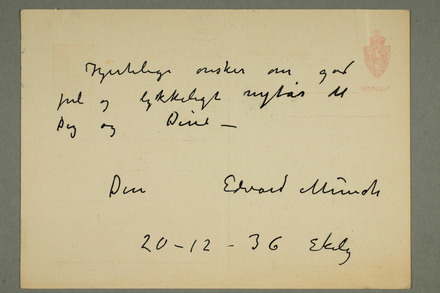 Hjertelige ønsker om god
jul og lykkeligt nytår til
Dig og Dine —
Din Edvard Munch
20-12-36 Ekely